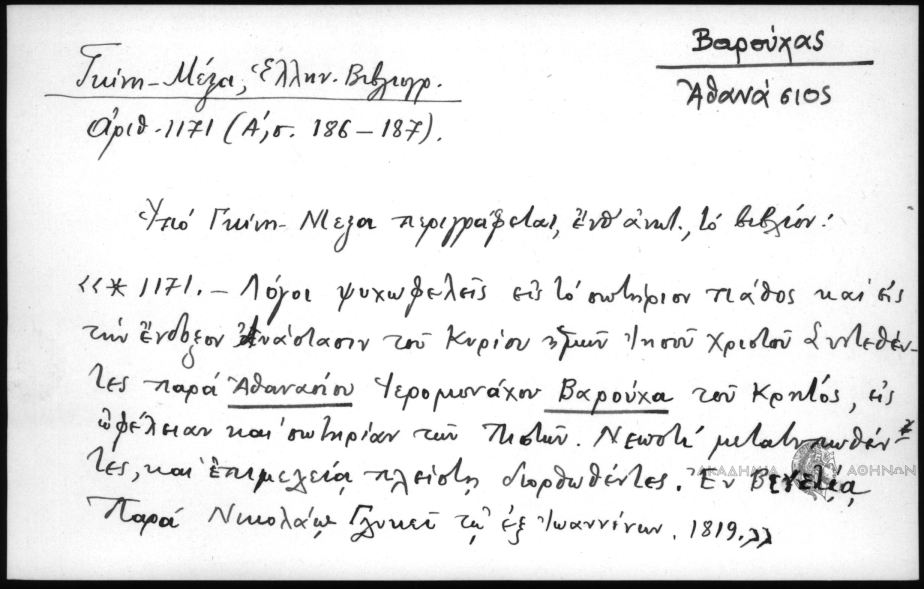 Βαρούχας
Ἀθανάσιος
Γκίνη-Μέξα, Ἑλλην. Βιβλιογρ.
ἀριθ. 1171 (Α΄, σ. 186-187).
Ὑπό Γκίνη-Μέξα περιγράφεται, ἔνθ' ἀνωτ., τό βιβλίον:
«* 1171. - Λόγοι ψυχωφελεῖς εἰς τό σωτήριον πάθος καί εἰς
τήν ἔνδοξον Ἀνάστασιν τοῦ Κυρίου ἡμῶν Ἰησοῦ Χριστοῦ Συντεθέν-
τες παρά Ἀθανασίου Ἱερομονάχου Βαρούχα τοῦ Κρητός, εἰς
ὠφέλειαν καί σωτηρίαν τῶν Πιστῶν. Νεωστί μετατυπωθέν-
τες, καί ἐπιμελείᾳ πλείστῃ διορθωθέντες. Ἐν Βενετίᾳ,
Παρά Νικολάῳ Γλυκεῖ τῷ ἐξ Ἰωαννίνων. 1819.»
ΑΚΑΔΗΜΙΑ ΑΘΗΝΩΝ